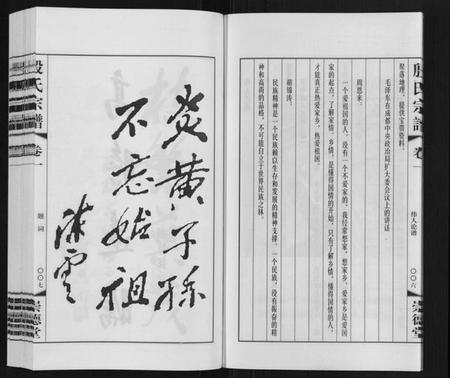 殷氏宗谱
卷一
伟人论谱
〇〇六
崇德堂
聚落地理,提供宝贵资料。
毛泽东在成都中央政治局扩大委会议上的讲话
周恩来:
一个爱祖国的人,没有一个不爱家的,我经常想家,想家乡,爱家乡是爱国
家的起点,了解家情、乡情,是懂得国情的开始,只有了解乡情,懂得国情的人,
才能真正热爱家乡,热爱祖国。
胡锦涛:
民族精神是一个民族赖以生存和发展的精神支撑,一个民族,没有振奋的精
神和高尚的品格,不可能自立于世界民族之林。
炎黄子孙
不忘始祖
陈云
殷氏宗谱
卷一
题词
〇〇七
崇德堂